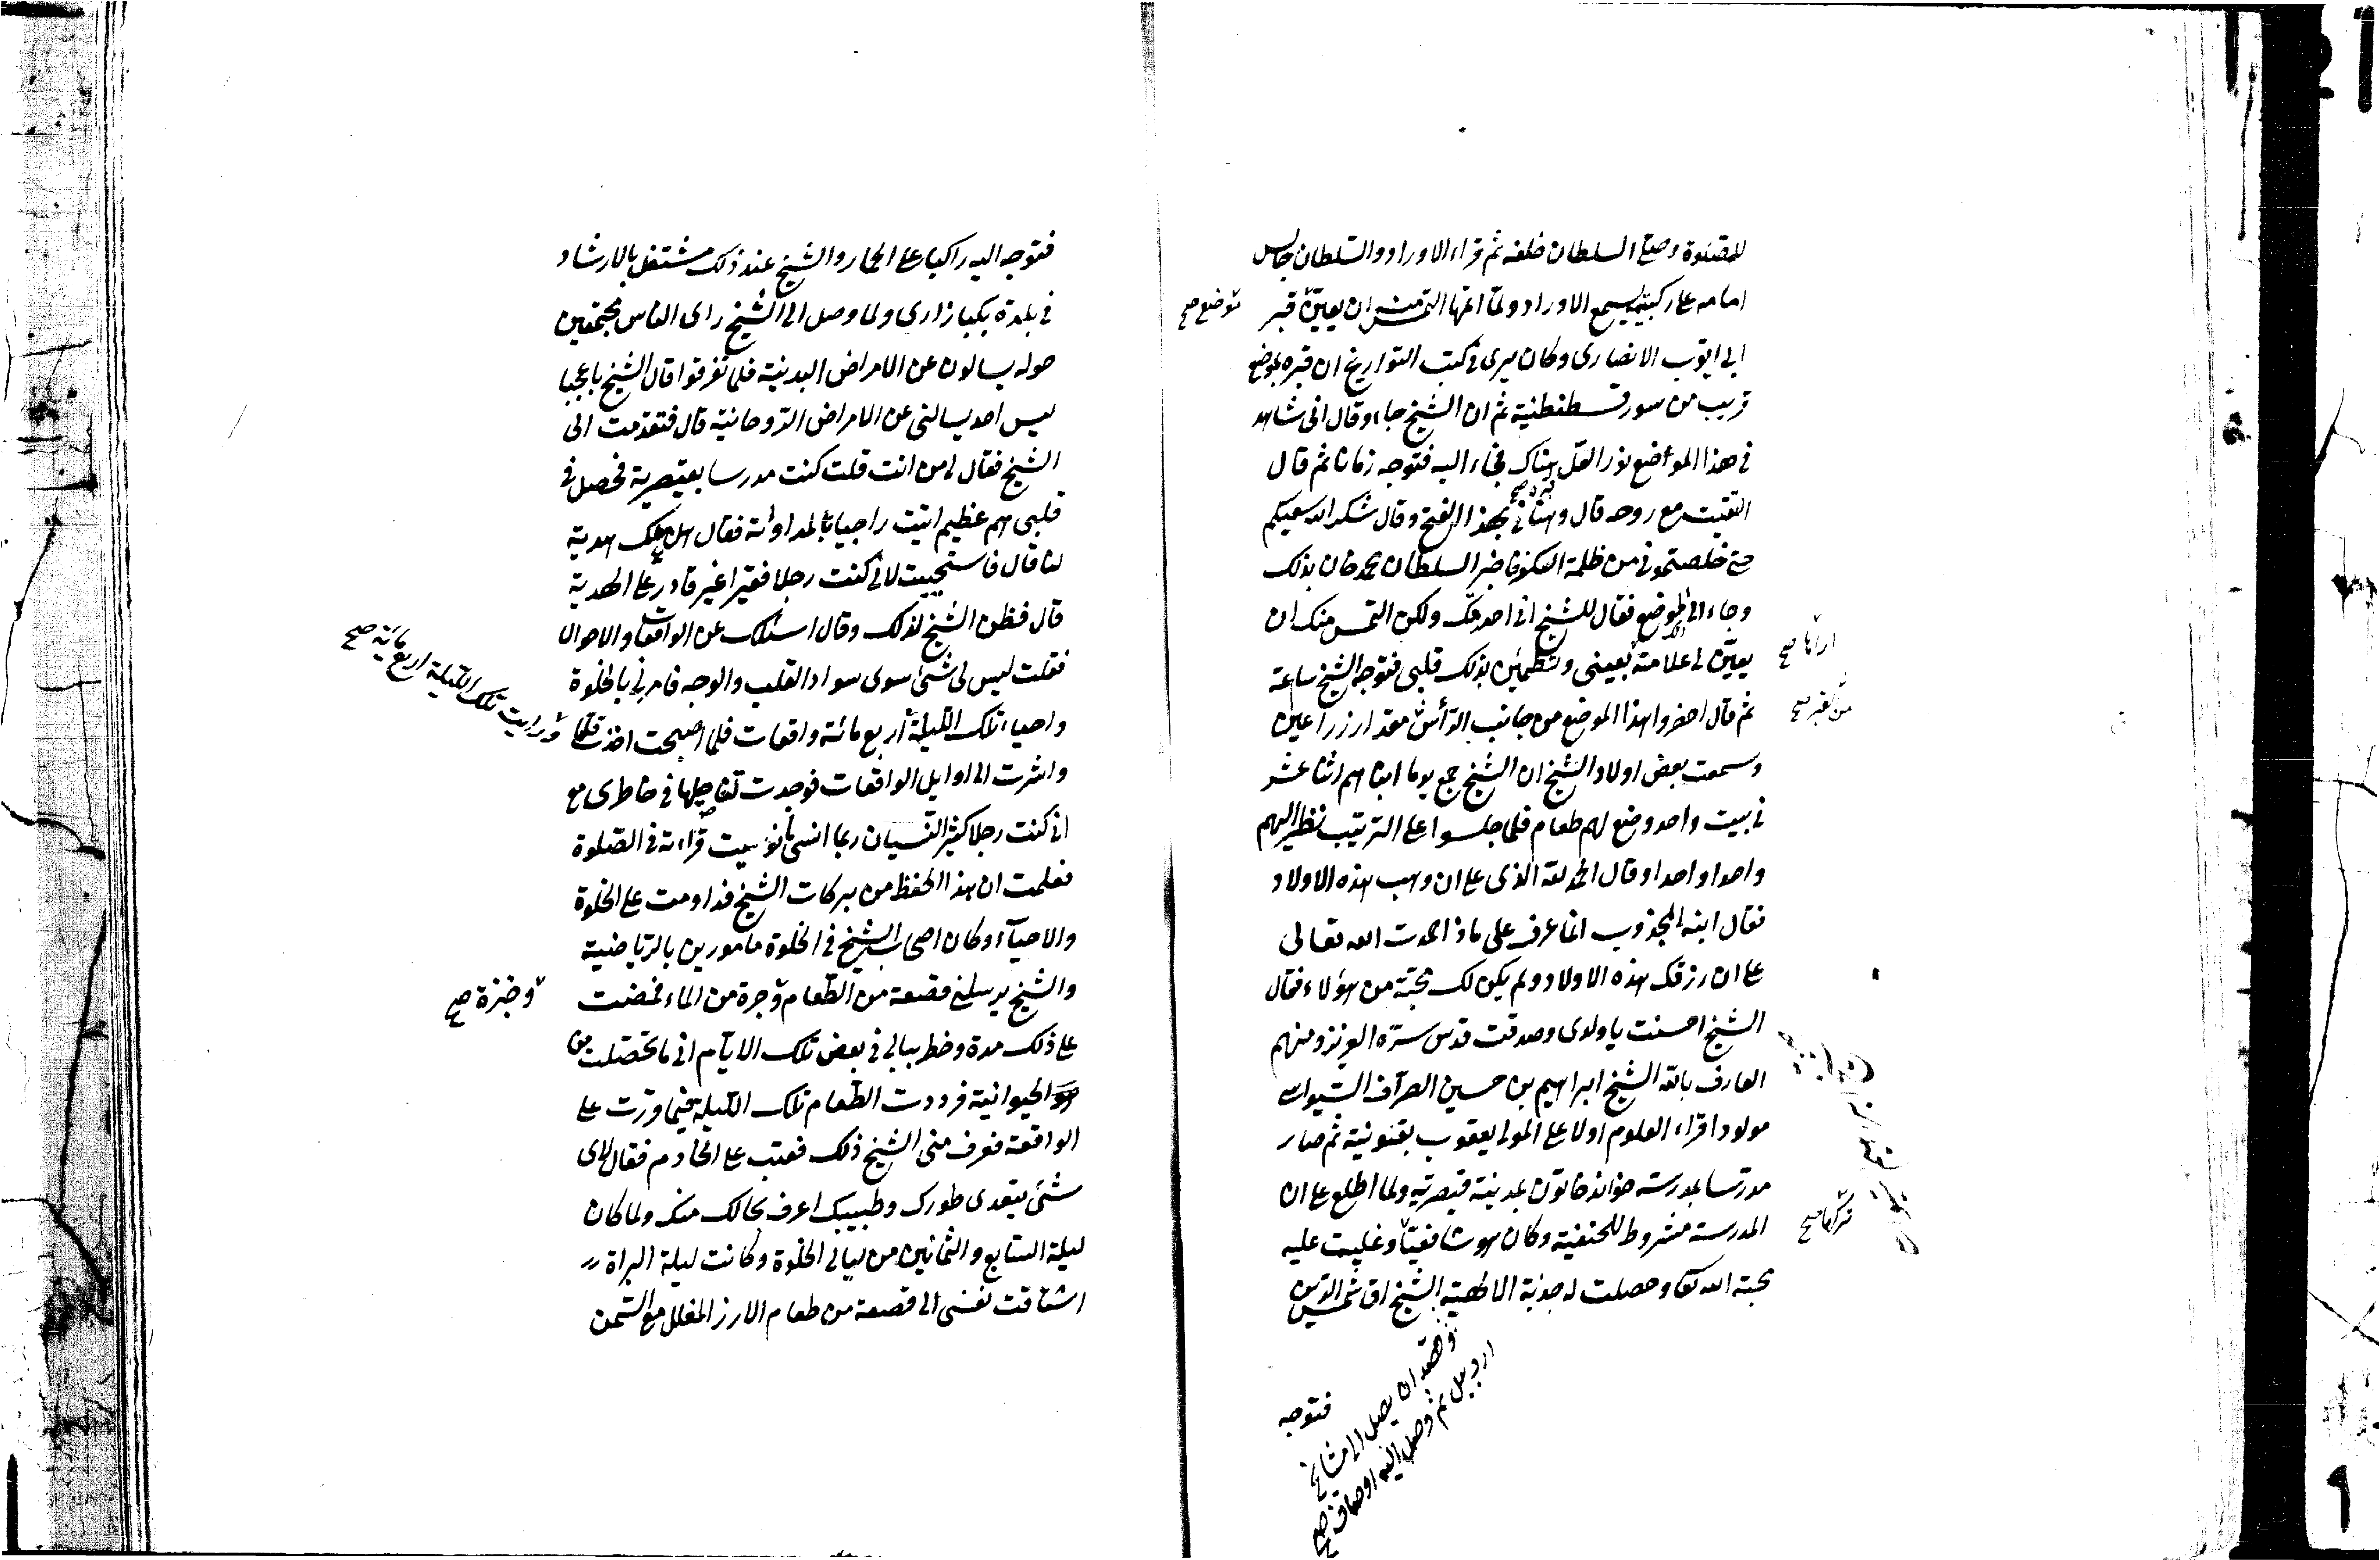 للصلوة وصلى السلطان خلفه ثم قراء الاوراد والسلطان جالس
امامه على ركبتيه يسمع الاوراد ولما اتمها التمس منه ان يعين قبر
ابي ايوب الانصارى وكان يرى في كتب التواريخ ان قبره بموضع
قريب من سور قسطنطنية ثم ان الشيخ جاء وقال انى شاهد
في هذا المواضع نور العل هناك فجاء اليه فتوجه زمانا ثم قال
التقيت مع روحه قال وهنأني بهذا الفتح وقال شكر الله سعيكم
حتى خلصتموني من ظلمة الكفر فاخبر السلطان محمد خان بذلك
وجاء الى الموضع فقال للشيخ اني اصدقك ولكن التمس منك ان
يعين لى علامة بعيني وتطمئن بذلك قلبي فتوجه الشيخ ساعة
ثم قال احفروا هذا الموضع من جانب الرأس مقدار ذراعين
وسمعت بعض اولاد الشيخ ان الشيخ جمع يوما ابناءهم اثنا عشر
في بيت واحد ووضع لهم طعام فلما جلسوا على الترتيب نظر اليهم
واحدا واحدا وقال الحمد لله الذى على ان وهب هذه الاولاد
فقال ابنه المجذوب اتا عرف على ماذا حمدت الله تعالى
على ان رزقك هذه الاولاد ولم يكن لك محبة من هؤلاء فقال
الشيخ احسنت يا ولدى وصدقت قدس سره العزيز ومنهم
العارف بالله الشيخ ابراهيم بن حسين الصراف السيواسى
مولودا قراء العلوم اولا على المولى يعقوب بقونية ثم صار
مدرسا بمدرسة خواند خاتون بمدينة قيصرية ولما اطلع على ان
المدرسة مشروط للحنفية وكان هو شافعيا وغلبت عليه
محبة الله تعالى وحصلت له جذبة الالهية الشيخ اق شمس الدين
توضع صح
اراها صح
من القبر صح
تركها صح
وقصد ان يصل الى مشايخ
اردبيل ثم وصل اليه اوصافه صح
فتوجه
فتوجه اليه راكبا على الحمار والشيخ عند ذلك مشتغل بالارشاد
في بلدة بكبازارى ولما وصل الى الشيخ راى الناس مجتمعين
حوله يسالون عن الامراض البدنية فلما تفرقوا قال الشيخ يا عجبا
ليس احد يسالنى عن الامراض الروحانية قال فتقدمت الى
الشيخ فقال لى من انت قلت كنت مدرسا بقيصرية فحصل فى
قلبى هم عظيم اتيت راجيا بالمداواة فقال هل لك هدية
لنا قال فاستحييت لانى كنت رجلا فقيرا غير قادر على الهدية
قال فظن الشيخ لذلك وقال اسئلك عن الواقعات والاحوال
فقلت ليس لى شئ سوى سواد القلب والوجه فامرنى بالخلوة
واحياء تلك الليلة اربع مائة واقعات فلما اصبحت اخذت قلما
واشرت الى اوايل الواقعات فوجدت تفاصيلها في خاطرى مع
انى كنت رجلا كثير النسيان ربما انسى ما نويت قراءته في الصلوة
فعلمت ان هذا الحفظ من بركات الشيخ فداومت على الخلوة
والاحياء وكان اصحاب الشيخ في الخلوة مامورين بالرياضية
والشيخ يرسلنى قصعة من الطعام وجرة من الماء فمضت
على ذلك مدة وخطر ببالى في بعض تلك الايام انى ما تخصلت من
الحيوانية فرددت الطعام تلك الليلة فيما وزت على
الواقعة فعرف منى الشيخ ذلك فعتب على الخادم فقال لاى
شئ يتعدى طورك وطبيبك اعرف بحالك منك ولما كان
ليلة السابع والثمانين من ليالى الخلوة وكانت ليلة البراة
اشتاقت نفسى الى قصعة من طعام الارز المفلل مع السمن
ورايت تلك الليلة اربع مائة صح
وخبزة صح